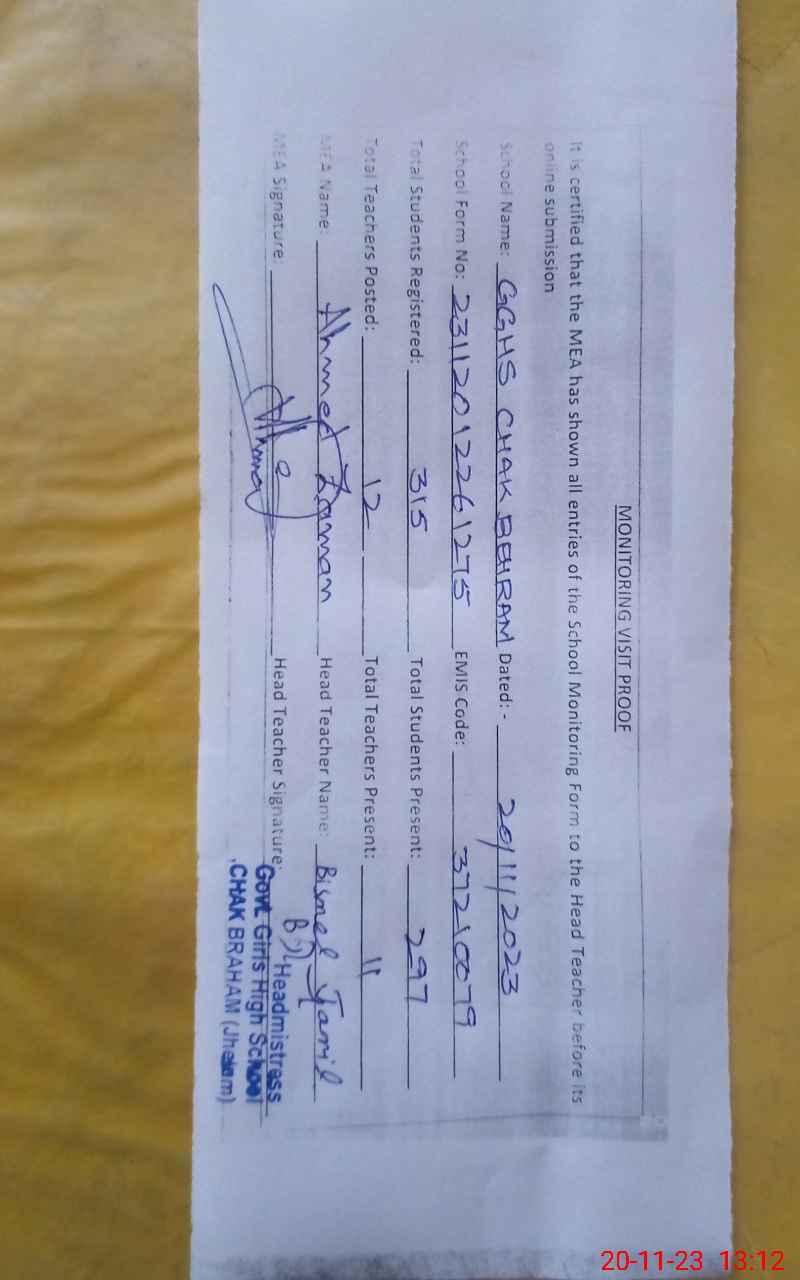 MONITORING VISIT PROOF
It is certified that the MEA has shown all entries of the School Monitoring Form to the Head Teacher before its
online submission
School Name: GGHS CHAK BEHRAM Dated:- 20/11/2023
School Form No: 23112012261275 EMIS Code: 37210079
Total Students Registered: 315 Total Students Present: 297
Total Teachers Posted: 12 Total Teachers Present: 11
MEA Name: Ahmed Zaman Head Teacher Name: Bismel Jamil
MEA Signature: Head Teacher Signature:
Headmistress
Govt. Girls High School
CHAK BRAHAM (Jhelum)
20-11-23 13:12